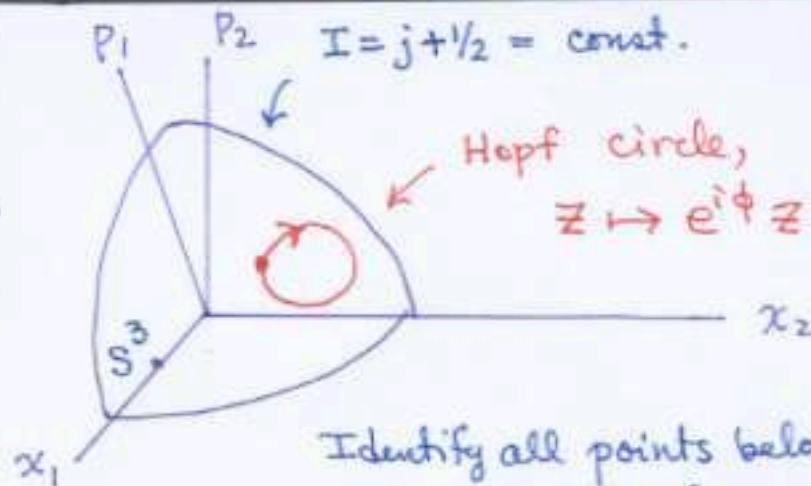 P1 P2 I = j+1/2 = const.
Hopf circle,
z ↦ e^{iφ} z
x2
S^3
x1
Identify all points